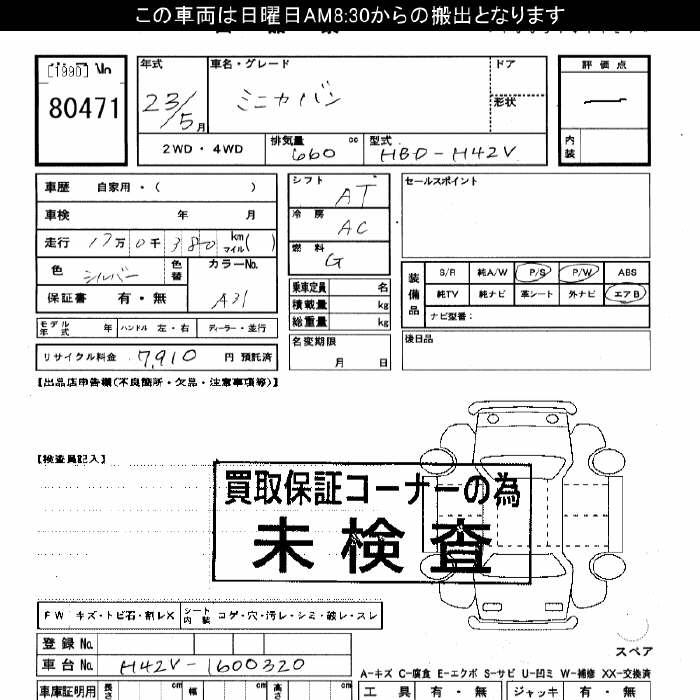 この車両は日曜日AM8:30からの搬出となります
[1990]
80471
年式
23/5月
車名・グレード
ミニカバン
ドア
形状
評価点
内装
2WD・4WD
排気量 660 cc
型式 HBD-H42V
車歴 自家用・( )
車検 年 月
走行 17万0千380 km マイル( )
色 シルバー 色替
カラーNo. A31
保証書 有・無
モデル年式 年 ハンドル 左・右 ディーラー・並行
リサイクル料金 7,910 円 預託済
シフト AT
冷房 AC
燃料 G
乗車定員 名
積載量 kg
総重量 kg
名変期限 月 日
セールスポイント
装備品
S/R 純A/W P/S P/W ABS
純TV 純ナビ 革シート 外ナビ エアB
ナビ型番:
後日品
【出品店申告欄(不良箇所・欠品・注意事項等)】
【検査員記入】
買取保証コーナーの為
未検査
FW キズ・トビ石・割レX シート内装 コゲ・穴・汚レ・シミ・破レ・スレ
登録No.
車台No. H42V-1600320
スペア
A-キズ C-腐食 E-エクボ S-サビ U-凹ミ W-補修 XX-交換済
車庫証明用 長さ cm 幅 cm 高さ cm
工具 有・無 ジャッキ 有・無